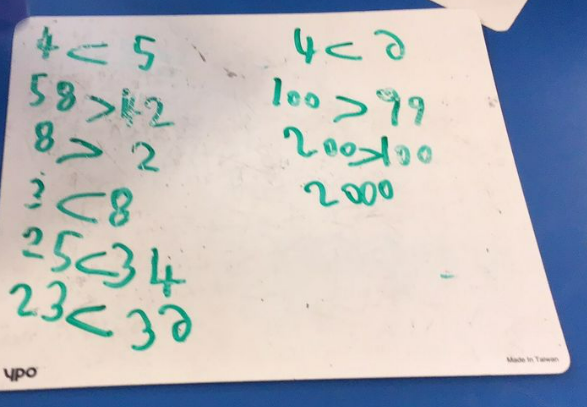 4 < 5
58 > 42
8 > 2
2 < 8
25 < 34
23 < 32
4 < 2
100 > 99
200 > 100
2000
ypo
Made In Taiwan